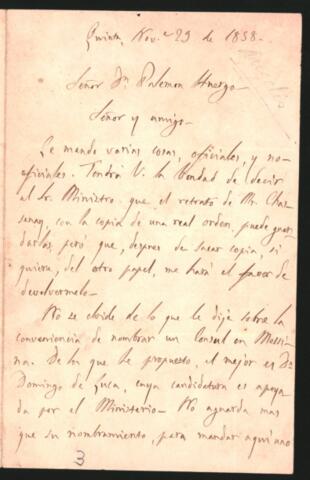 Quinta, Nov.e 29 de 1858.
Señor Dn Palemon Huergo
Señor y amigo.
Le mando varias cosas, oficiales, y no
oficiales. Tendrá V. la bondad de decir
al Sr. Ministro que el retrato de Mr. Chas-
sanay, con la copia de una real orden, puede guar-
darlas, pero que, despues de sacar copia, si
quiere, del otro papel, me hará el favor de
devolvermelo
No se olvide de lo que le dije sobre la
conveniencia de nombrar un Consul en Messi-
na. De los que he propuesto, el mejor es Dn
Domingo de Luca, cuya candidatura es apoya-
da por el Ministerio. No aguarda mas
que su nombramiento, para mandar aquí uno
3